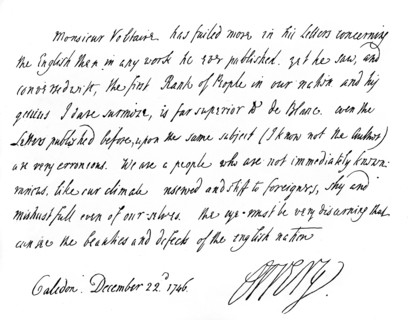 Monsieur Voltaire has failed more in his Letters concerning
the English than in any work he ever published. yet he saw, and
convers'd with, the first Rank of People in our nation and his
genius I dare surmize, is far superior to de Blanc. even the
Letters published before, upon the same subject (I know not the Author)
are very erroneous. We are a people who are not immediately known:
various like our climate reserved and stiff to foreigners, shy and
mistrustfull even of our selves. the eye must be very discerning that
can see the beauties and defects of the english nation
Caledon. December 22.d 1746.
Orrery.